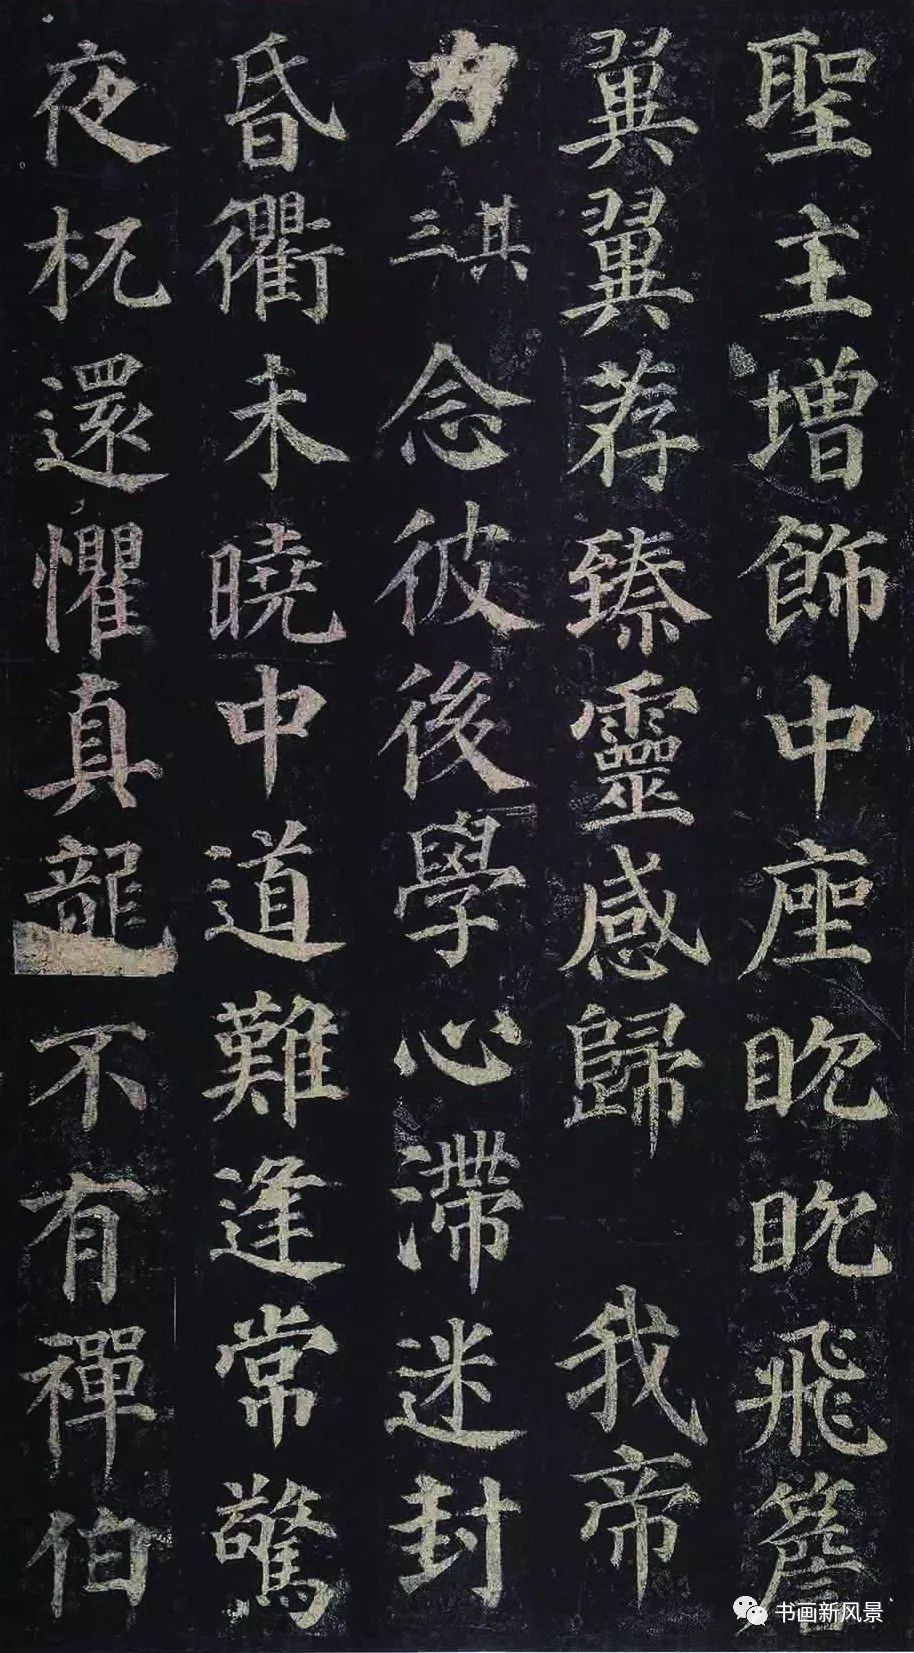 聖主增飾中座眈眈飛簷
翼翼荐臻靈感歸 我帝
力其三念彼後學心滯迷封
昏衢未曉中道難逢常驚
夜杌還懼真龍不有禪伯
书画新风景